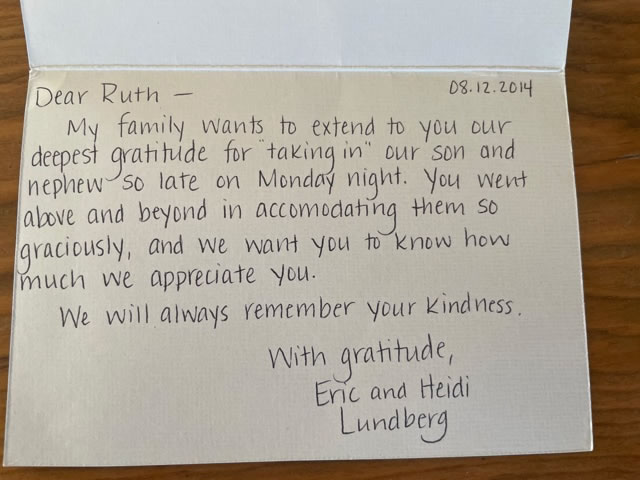 Dear Ruth — 08.12.2014
My family wants to extend to you our
deepest gratitude for "taking in" our son and
nephew so late on Monday night. You went
above and beyond in accomodating them so
graciously, and we want you to know how
much we appreciate you.
We will always remember your kindness.
With gratitude,
Eric and Heidi
Lundberg